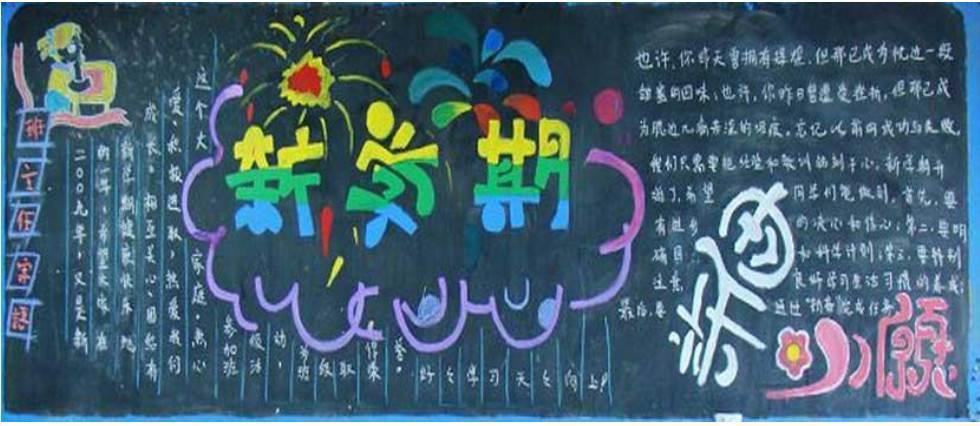 新学期
班
工
作
寄
语
二00九年,又是新
的一年,希望大家在
新学期健康快乐地
成长。相互关心,团结有
爱,积极进取,热爱我们
这个大家庭,热心
参加班
级活
动,
为班级取得荣誉。
好好学习天天向上!
也许,你昨天曾拥有辉煌,但那已成为枕边一段
甜蜜的回味;也许,你昨日曾遭受挫折,但那已成
为腮边几滴苦涩的泪痕。忘记以前的成功与失败,
我们只需要把经验和教训铭刻于心。新学期开
始了,希望同学们能做到:首先,要
有进步的决心和信心;第二,要明
确目和科学计划;第三,要特别
注意,良好学习生活习惯的养成;
最后,要通过“勤奋”完成任务
新
心愿